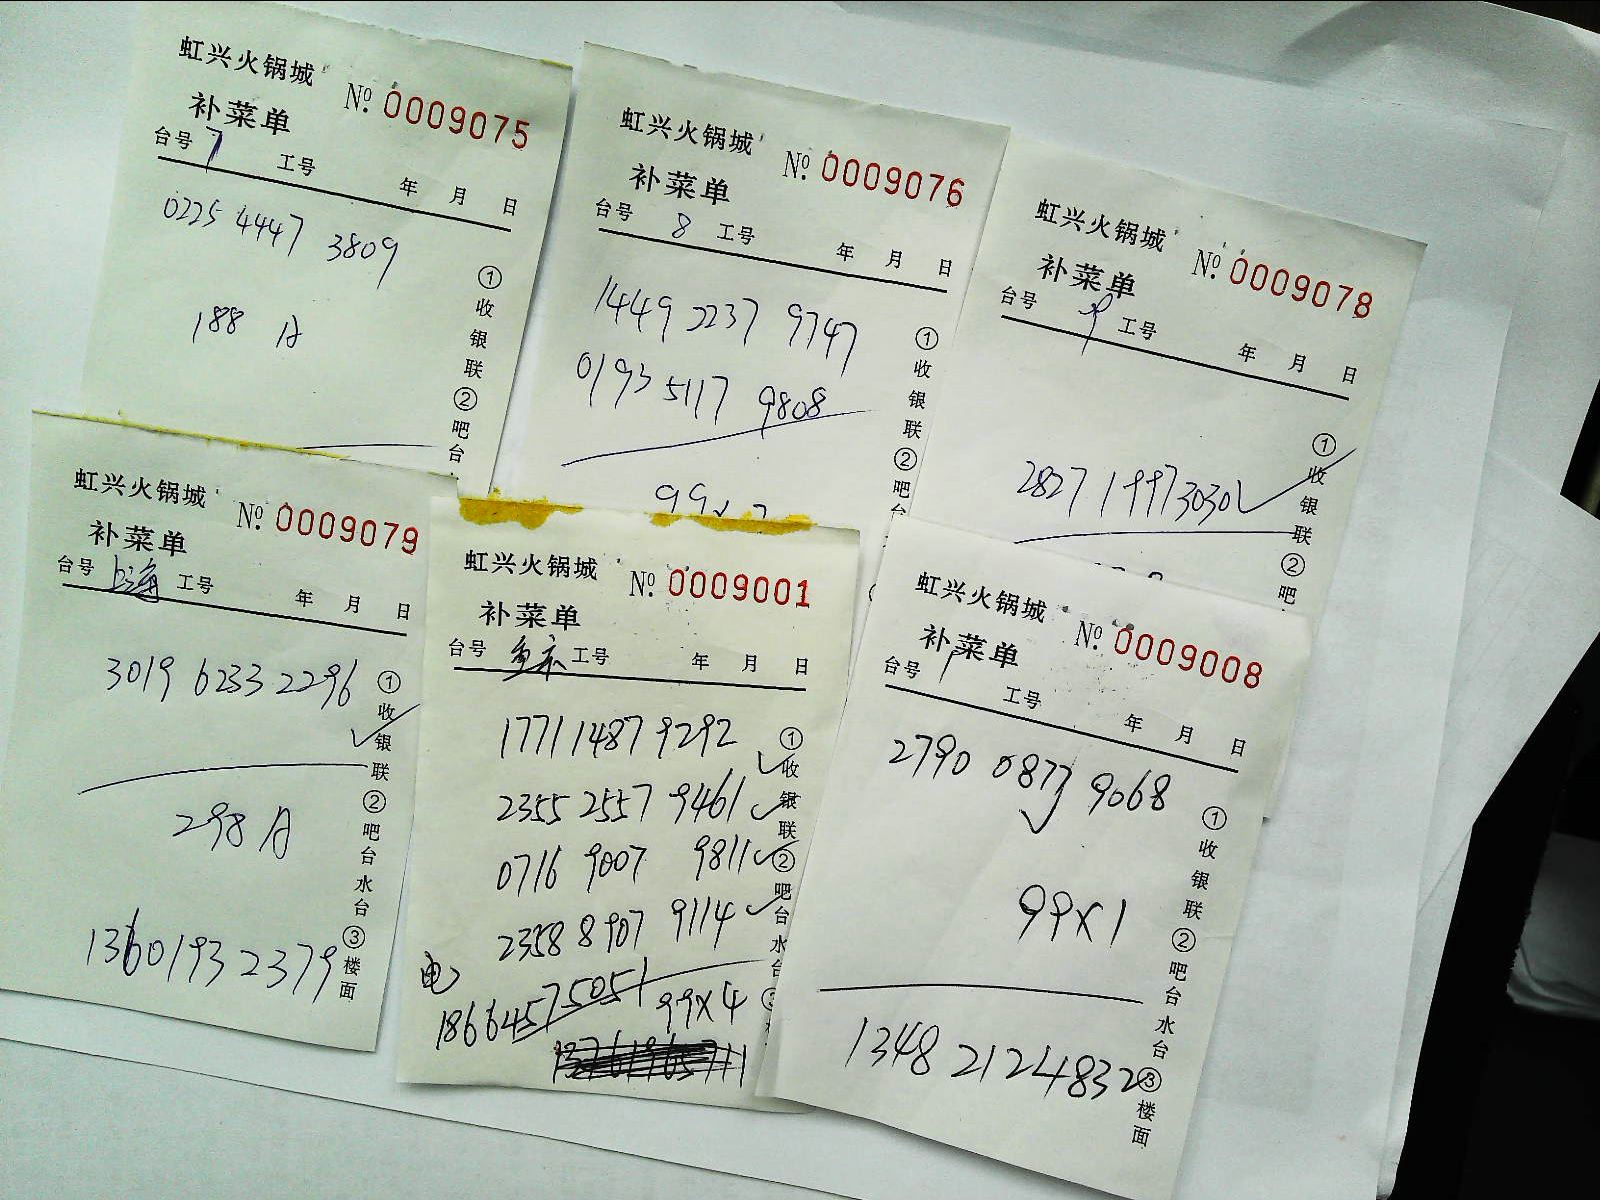 虹兴火锅城
补菜单 № 0009075
台号 7 工号 年 月 日
0225 4447 3809
188 A
①收银联②吧台
虹兴火锅城
补菜单 № 0009076
台号 8 工号 年 月 日
1449 2237 9747
0193 5117 9808
①收银联②吧台
虹兴火锅城
补菜单 № 0009078
台号 9 工号 年 月 日
2827 1997 3030
①收银联②吧
虹兴火锅城
补菜单 № 0009079
台号 上海 工号 年 月 日
3019 6233 2296
298 A
13601932379
①收银联②吧台水台③楼面
虹兴火锅城
补菜单 № 0009001
台号 工号 年 月 日
1771 1487 9292
2355 2557 9461
0716 9007 9811
2358 8907 9114
电
18664575051 99X4
①收银联②吧台水台③楼
虹兴火锅城
补菜单 № 0009008
台号 1 工号 年 月 日
2790 0877 9068
99X1
1348 2124832
①收银联②吧台水台③楼面